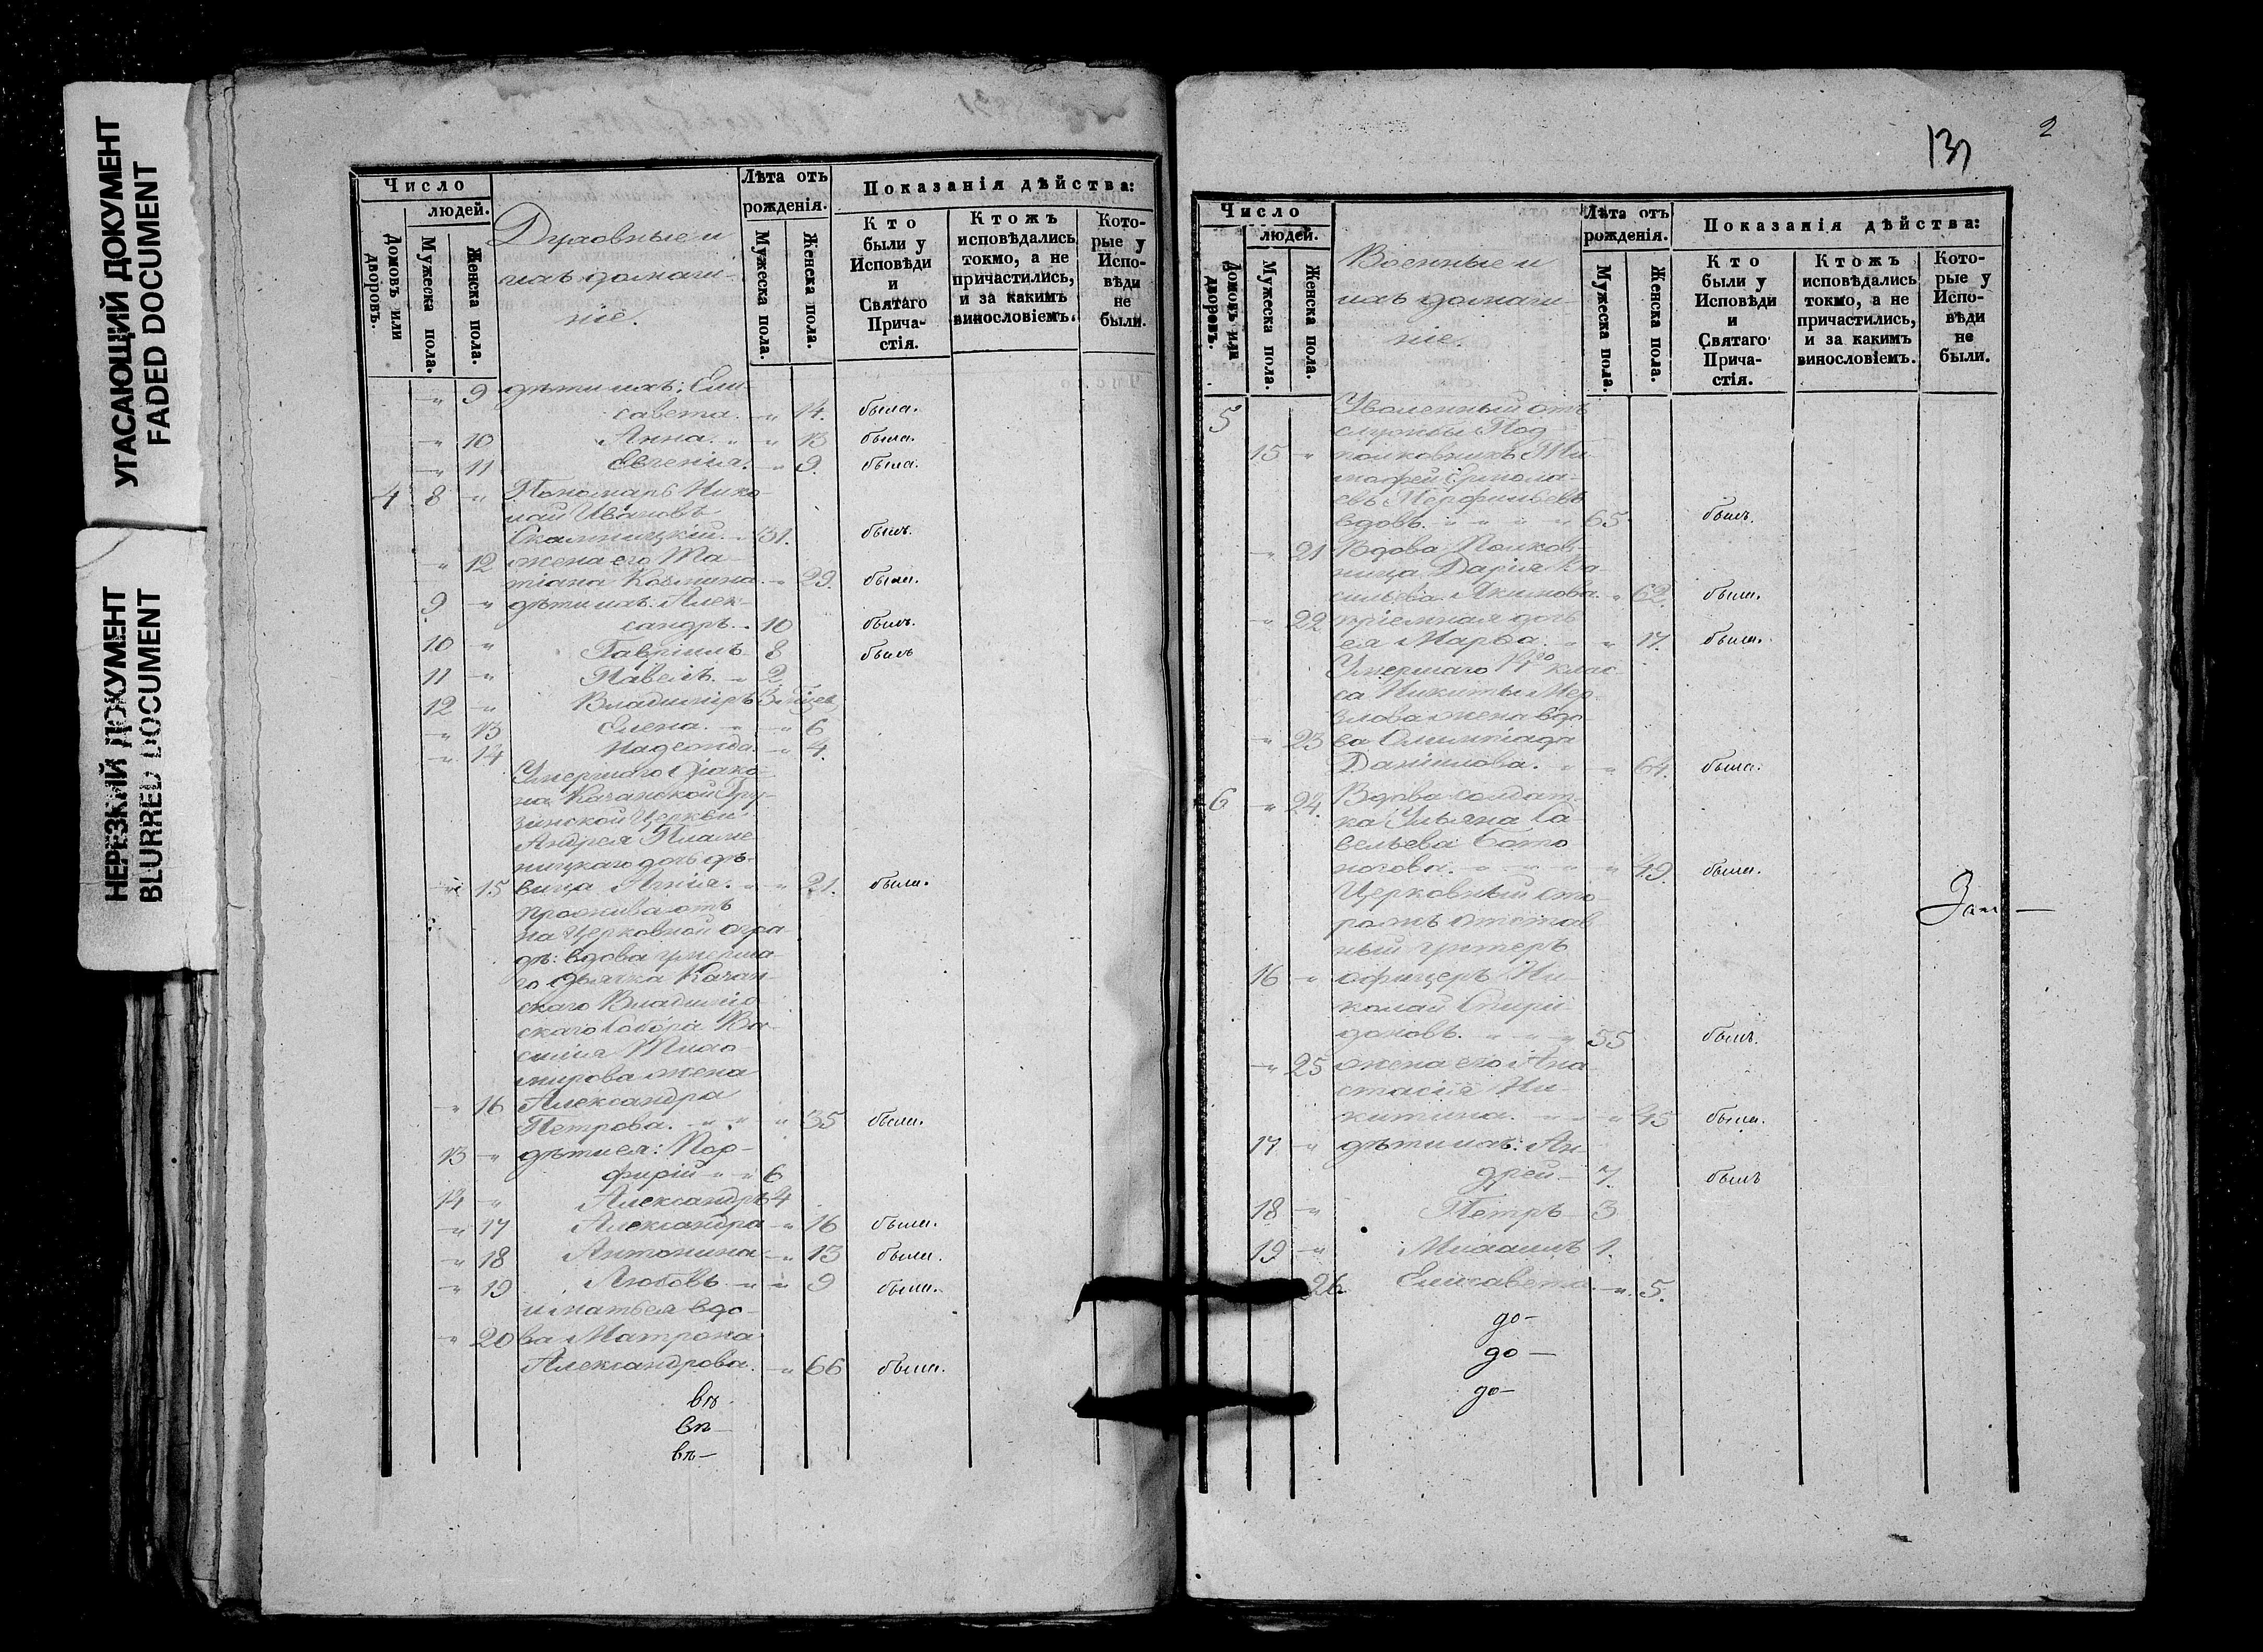 УГАСАЮЩИЙ ДОКУМЕНТ
FADED DOCUMENT
НЕРЕЗКИЙ ДОКУМЕНТ
BLURRED DOCUMENT
Число
людей.
Домовъ или дворовъ.
Мужеска пола.
Женска пола.
Духовные и
ихъ домаш-
ніе.
Лѣта отъ
рожденія.
Мужеска пола.
Женска пола.
Показанія дѣйства:
Кто
были у
Исповѣди
и
Святаго
Прича-
стія.
Ктожъ
исповѣдались
токмо, а не
причастились,
и за какимъ
винословіемъ.
Кото-
рые у
Испо-
вѣди
не
были.
" 9 дѣти ихъ: Ели-
савета. " 14. была.
" 10 Анна. " " 13 была.
" 11 Евгенія. " 9. была.
4 8 " Пономарь Нико-
лай Ивановъ
31. былъ.
" 12 жена его Та-
тіана Козмина. " 29. была.
9 " дѣти ихъ: Алек-
сандръ. " 10 былъ.
10 " Гавріилъ 8 былъ
11 " Павелъ. " 2
12 " Владиміръ
" 13 Елена. " " 6
" 14 Надежда. " 4.
Умершаго Діако-
на Казанской Гру-
зинской Церкви
Андрея
дочь дѣ-
" 15 вица " " 21. была.
Проживаютъ
на Церковной огра-
дѣ: вдова умерша-
го дьячка Казан-
скаго Владимір
скаго Собора Ва-
силія Тихо-
мирова жена
" 16 Александра
Петрова. " " " 35 была.
13 " дѣти ея: Пор-
фирій " " 6
14 " Александръ 4
" 17 Александра " 16 была.
" 18 Антонина " 13 была.
" 19 Любовь " " 9 была.
и мать ея вдо-
" 20 ва Матрона
Александрова. " 66 была.
13
2
Число
людей.
Домовъ или дворовъ.
Мужеска пола.
Женска пола.
Военные и
ихъ домаш-
ніе.
Лѣта отъ
рожденія.
Мужеска пола.
Женска пола.
Показанія дѣйства:
Кто
были у
Исповѣди
и
Святаго
Прича-
стія.
Ктожъ
исповѣдались
токмо, а не
причастились,
и за какимъ
винословіемъ.
Кото-
рые у
Испо-
вѣди
не
были.
5 Уволенный отъ
службы Под-
15 " полковникъ Ти-
мофей Ермола-
евъ
вдовъ. " " " " 65 былъ.
" 21 Вдова Полков-
ница Дарія Ва-
сильева Акимова. " 62. была.
" 22 пріемная дочь
ея Марѳа. " " 17. была.
Умершаго 14го клас-
са Никиты
жена вдо
" 23 ва Олимпіада
Данилова. " " 64. была.
6 " 24. Вдова солдат-
ка Ульяна Са-
вельева
" " " " 49. была.
Церковный сто-
рожъ отстав
ный унтеръ
16 " офицеръ Ни-
колай Спири-
доновъ. " " " 55 былъ.
" 25 жена его Ана-
стасія Ни-
китина. " " " 45 была.
17 " дѣти ихъ: Ан-
дрей 7. былъ
18 " Петръ 3
19 " Михаилъ 1.
26. Елисавета. " 5.
до-
до-
до-